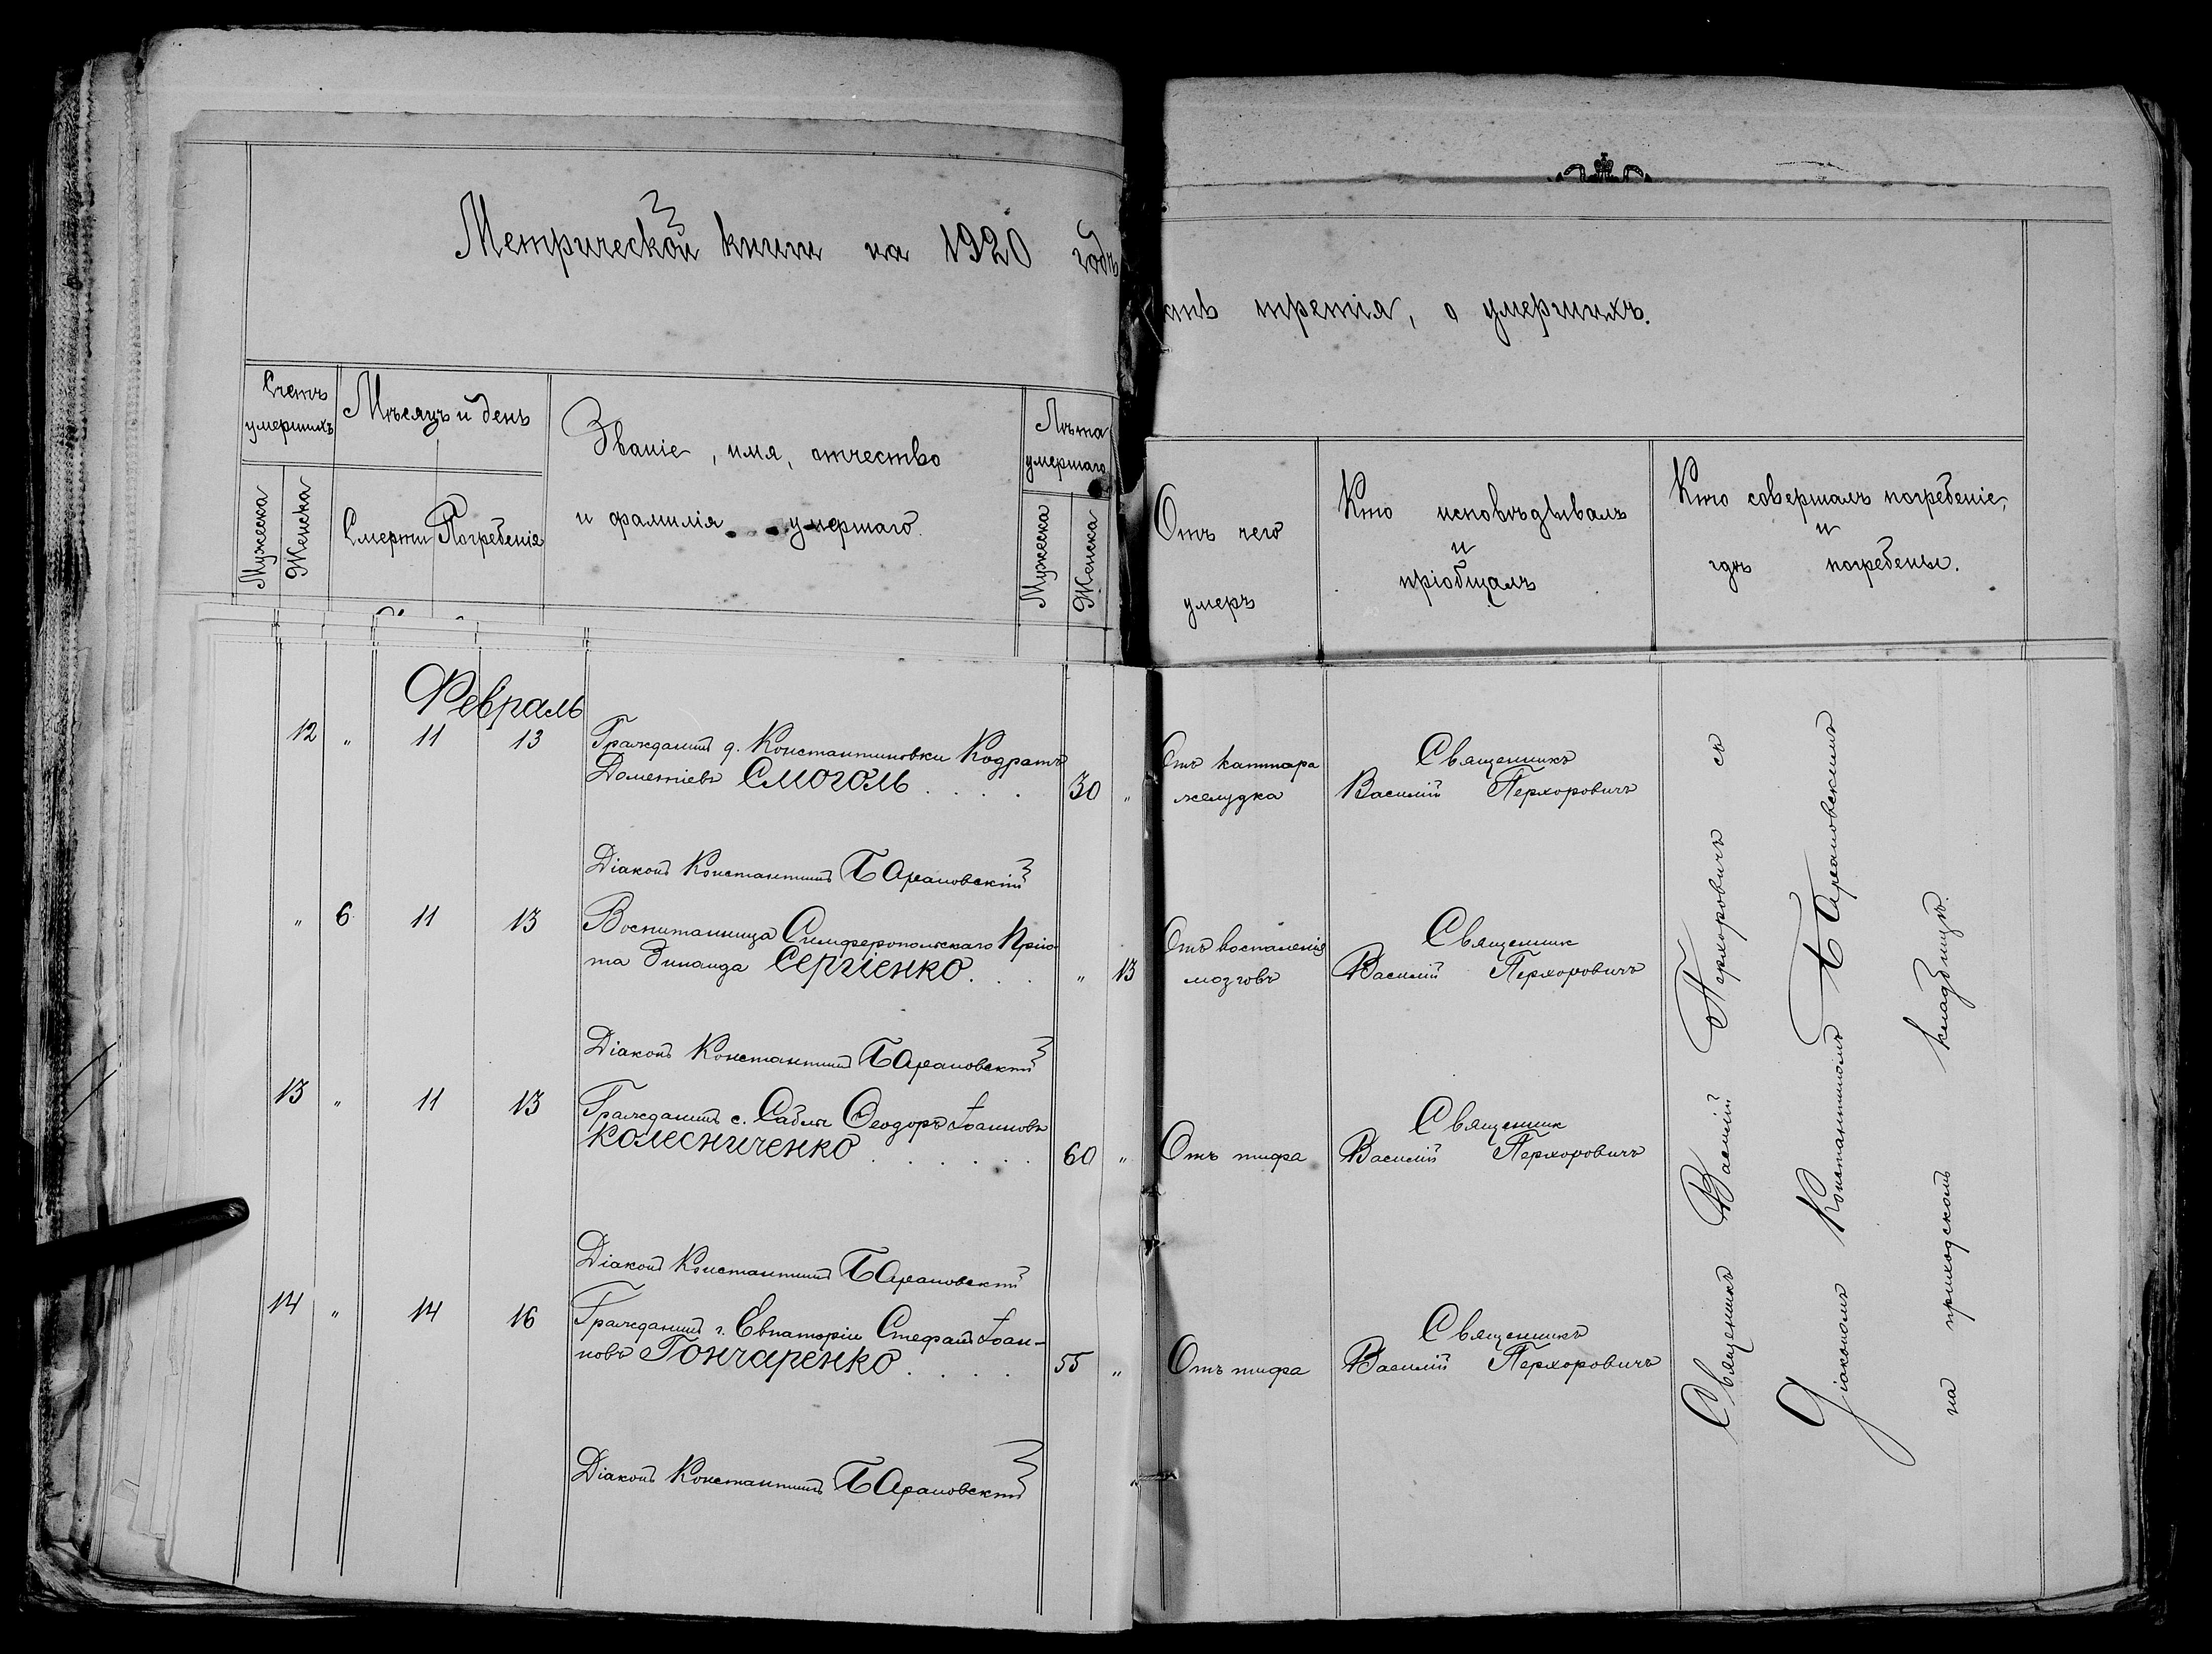 Метрической книги на 1920 годъ
сть третія, о умершихъ.
Счетъ умершихъ
Мужеска
Женска
Мѣсяцъ и день
Смерти
Погребенія
Званіе, имя, отчество
и фамилія умершаго.
Лѣта умершаго
Мужеска
Женска
Отъ чего
умеръ
Кто исповѣдывалъ
и
пріобщалъ
Кто совершалъ погребеніе,
и
гдѣ погребены.
Февраль
12 " 11 13 Гражданинъ д. Константиновки Кодратъ
Дометіевъ Смоголь . . . . 30 "
Отъ каттара
желудка
Священникъ
Василій Перхоровичъ
Діаконъ Константинъ Барановскій
" 6 11 13 Воспитанница Симферопольскаго Прію-
та Зинаида Сергіенко. . . " 13
Отъ воспаленія
мозговъ
Священник
Василій Перхоровичъ
Діаконъ Константинъ Барановскій
13 " 11 13 Гражданинъ с. Саблы Ѳеодоръ Іоанновъ
Колесниченко . . . . . . 60 "
Отъ тифа
Священник
Василій Перхоровичъ
Діаконъ Константинъ Барановскій
14 " 14 16 Гражданинъ г. Евпаторіи Стефанъ Іоан-
новъ Гончаренко . . . . 55 "
Отъ тифа
Священникъ
Василій Перхоровичъ
Діаконъ Константинъ Барановскій
Священникъ Василій Перхоровичъ съ
Діакономъ Константиномъ Барановскимъ
на приходскомъ кладбищѣ.